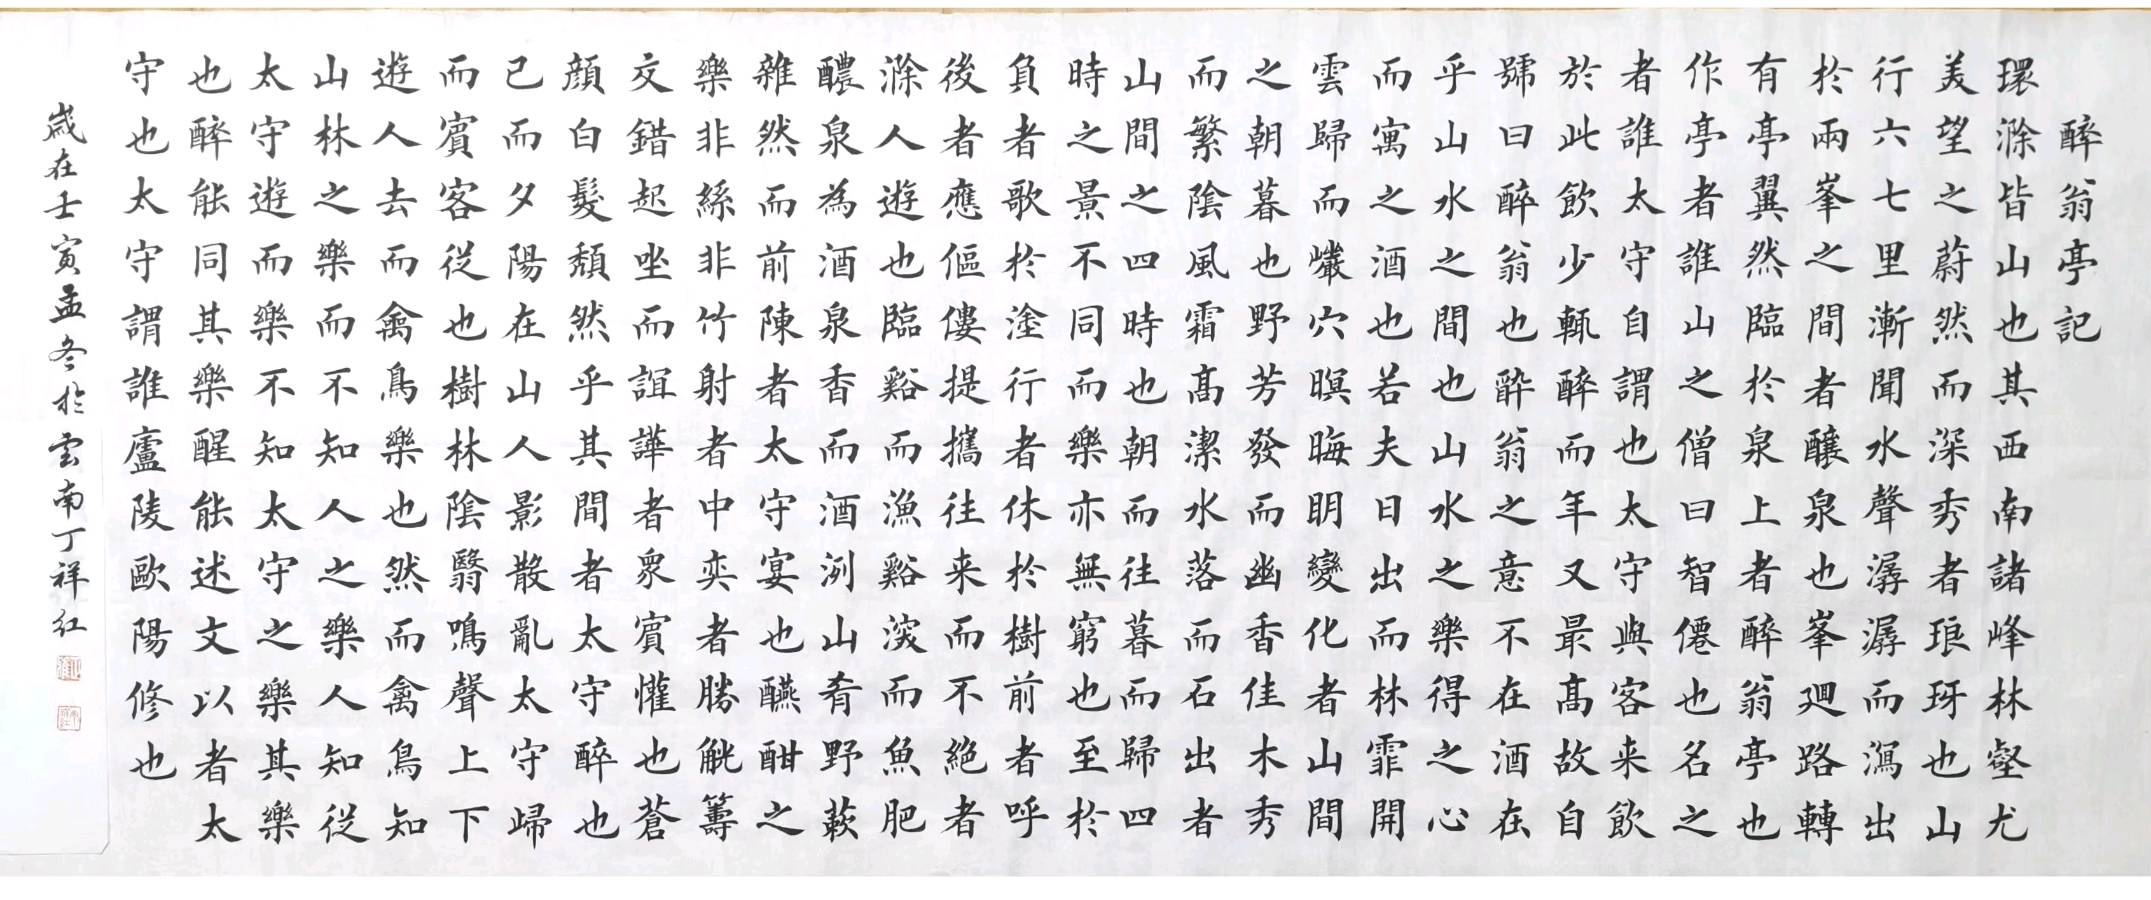 醉翁亭記
環滁皆山也其西南諸峰林壑尤
美望之蔚然而深秀者琅玡也山
行六七里漸聞水聲潺潺而瀉出
於兩峯之間者釀泉也峯廻路轉
有亭翼然臨於泉上者醉翁亭也
作亭者誰山之僧曰智僊也名之
者誰太守自謂也太守與客来飲
於此飲少輒醉而年又最高故自
號曰醉翁也醉翁之意不在酒在
乎山水之間也山水之樂得之心
而寓之酒也若夫日出而林霏開
雲歸而巗穴暝晦明變化者山間
之朝暮也野芳發而幽香佳木秀
而繁陰風霜高潔水落而石出者
山間之四時也朝而往暮而歸四
時之景不同而樂亦無窮也至於
負者歌於塗行者休於樹前者呼
後者應傴僂提攜往来而不絶者
滁人遊也臨谿而漁谿深而魚肥
醲泉為酒泉香而酒洌山肴野蔌
雜然而前陳者太守宴也醼酣之
樂非絲非竹射者中奕者勝觥籌
交錯起坐而諠譁者衆賓懽也蒼
顏白髮頹然乎其間者太守醉也
已而夕陽在山人影散亂太守歸
而賓客從也樹林陰翳鳴聲上下
遊人去而禽鳥樂也然而禽鳥知
山林之樂而不知人之樂人知從
太守遊而樂不知太守之樂其樂
也醉能同其樂醒能述文以者太
守也太守謂誰廬陵歐陽修也
歲在壬寅孟冬於云南丁祥红